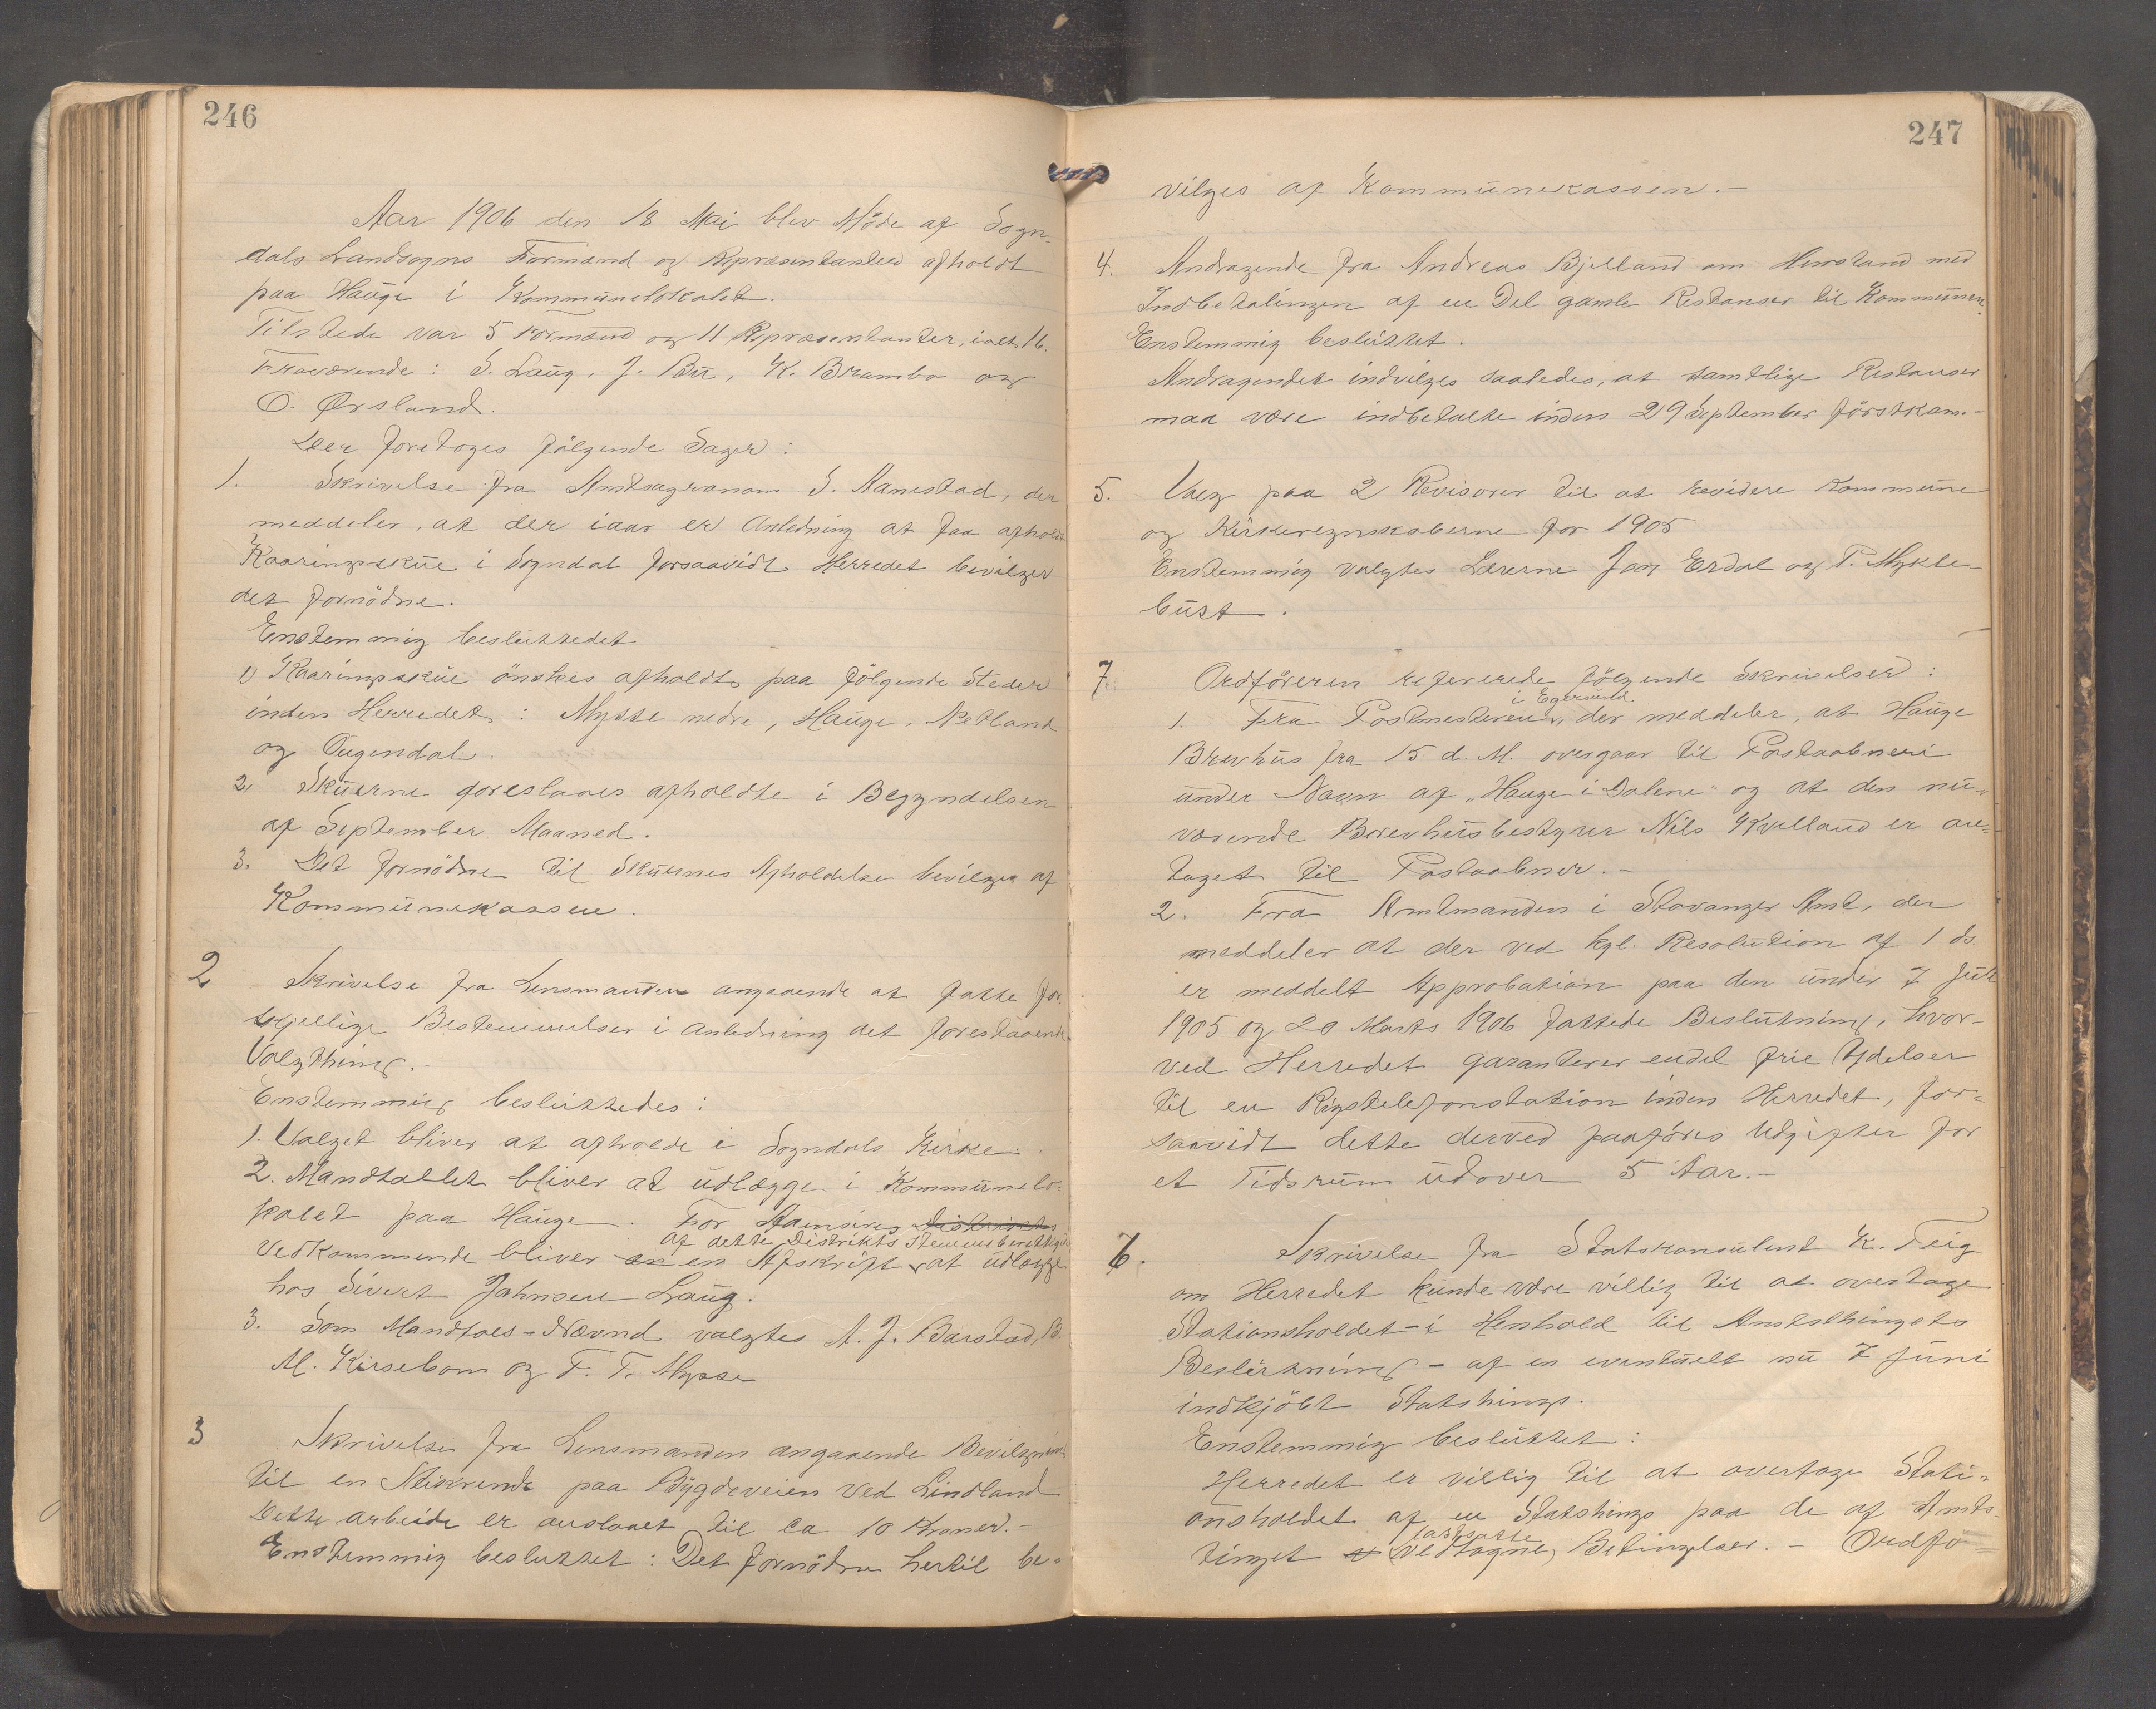 246
Aar 1906 den 18 Mai blev Möde af Sogn-
dals Landsogns Formænd og Repræsentanter afholdt
paa Hauge i Kommunelokalet.
Tilstede var 5 Formænd og 11 Repræsentanter, ialt 16.
Fraværende: S. Laug, J. Bu, K. Brambo og
O. Ørsland.
Der foretoges fölgende Sager:
1. Skrivelse fra Amtsagronom S. Aanestad, der
meddeler, at der iaar er Anledning at faa afholdt
Kaaringsskue i Sogndal forsaavidt Herredet bevilger
det fornödne.
Enstemmig besluttedet
1) Kaaringsskue önskes afholdt paa fölgende Steder
inden Herredet: Mysse nedre, Hauge, Netland
og Ougendal.
2, Skuerne foreslaaes afholdte i Begyndelsen
af September Maaned.
3. Det fornödne til Skuernes Afholdelse bevilges af
Kommunekassen.
2 Skrivelse fra Lensmanden angaaende at fatte for
skjellige Bestemmelser i Anledning det forestaaende
Valgthing.-
Enstemmig besluttedes:
1. Valget bliver at afholde i Sogndals Kirke.
2. Mandtallet bliver at udlægge i Kommunelo-
kalet paa Hauge. For Aamsires Distrikts
af dette Distrikts stemmeberettige
Vedkommende bliver en Afskrift at udlægge
hos Sivert Johnsen Laug.
3. Som Mandtals-Nævnd valgtes A. J. Barstad, B.
M. Kirsebom og F. T. Mysse
3 Skrivelse fra Lensmanden angaaende Bevilgning
til en Stikrende paa Bygdeveien ved Lindland
Dette arbeide er anslaaet til ca 10 Kroner.-
Enstemmig besluttet: Det fornödne hertil be-
247
vilges af Kommunekassen.-
4. Andragende fra Andreas Bjelland om Henstand med
Indbetalingen af en Del gamle Restanser til Kommunen.
Enstemmig besluttet.
Andragendet indvilges saaledes, at samtlige Restanser
maa være indbetalte inden 29 September förstkom.-
5. Valg paa 2 Revisorer til at revidere Kommune
og Kirkeregnskaberne for 1905
Enstemmig valgtes Lærerne Jon Erdal og T. Mykle-
bust.
7. Ordföreren refererede fölgende Skrivelser:
i Egersund
1. Fra Postmesteren, der meddeler, at Hauge
Brevhus fra 15 d. M. overgaar til Postaabneri
under Navn af "Hauge i Dalene" og at den nu-
værende Brevhusbestyrer Nils Kvelland er an-
taget til Postaabner.-
2. Fra Amtmanden i Stavanger Amt, der
meddeler at der ved kgl. Resolution af 1 ds.
er meddelt Approbation paa den under 7 Juli
1905 og 20 Marts 1906 fattede Beslutning, hvor-
ved Herredet garanterer endel frie Ydelser
til en Rigstelefonstation inden Herredet, for-
saavidt dette derved paaføres Udgifter for
et Tidsrum udover 5 Aar.-
6. Skrivelse fra Statskonsulent K. Feig
om Herredet kunde være villig til at overtage
Stationsholdet - i Henhold til Amtsthingets
Beslutning - af en eventuelt nu 7 Juni
indkjöbt Statshingst.
Enstemmig besluttet:
Herredet er villig til at overtage Stati-
onsholdet af en Statshingst paa de af Amts-
fastsatte
tinget vedtagne, Betingelser.- Ordfö-